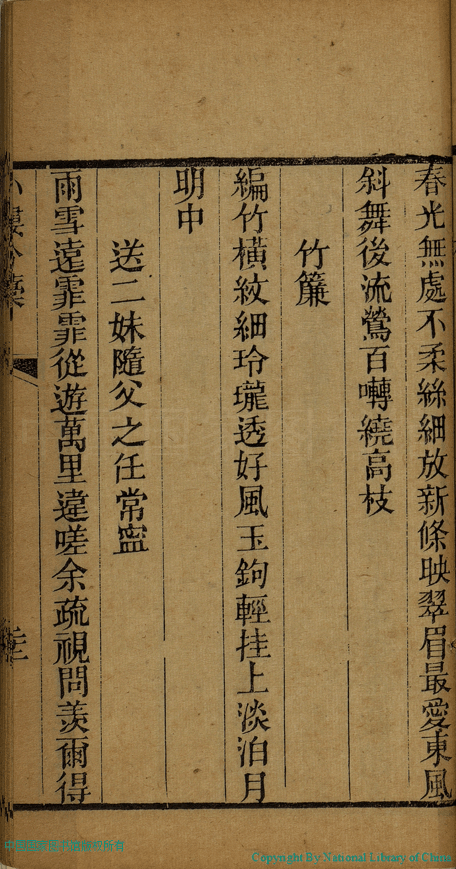 春光無處不柔絲細放新條映翠眉最愛東風
斜舞後流鶯百囀繞高枝
竹簾
編竹橫紋細玲瓏透好風玉鉤輕挂上淡泊月
明中
送二妹隨父之任常寍
雨雪遠霏霏從遊萬里違嗟余疏視問羨爾得
Copyright By National Library of China